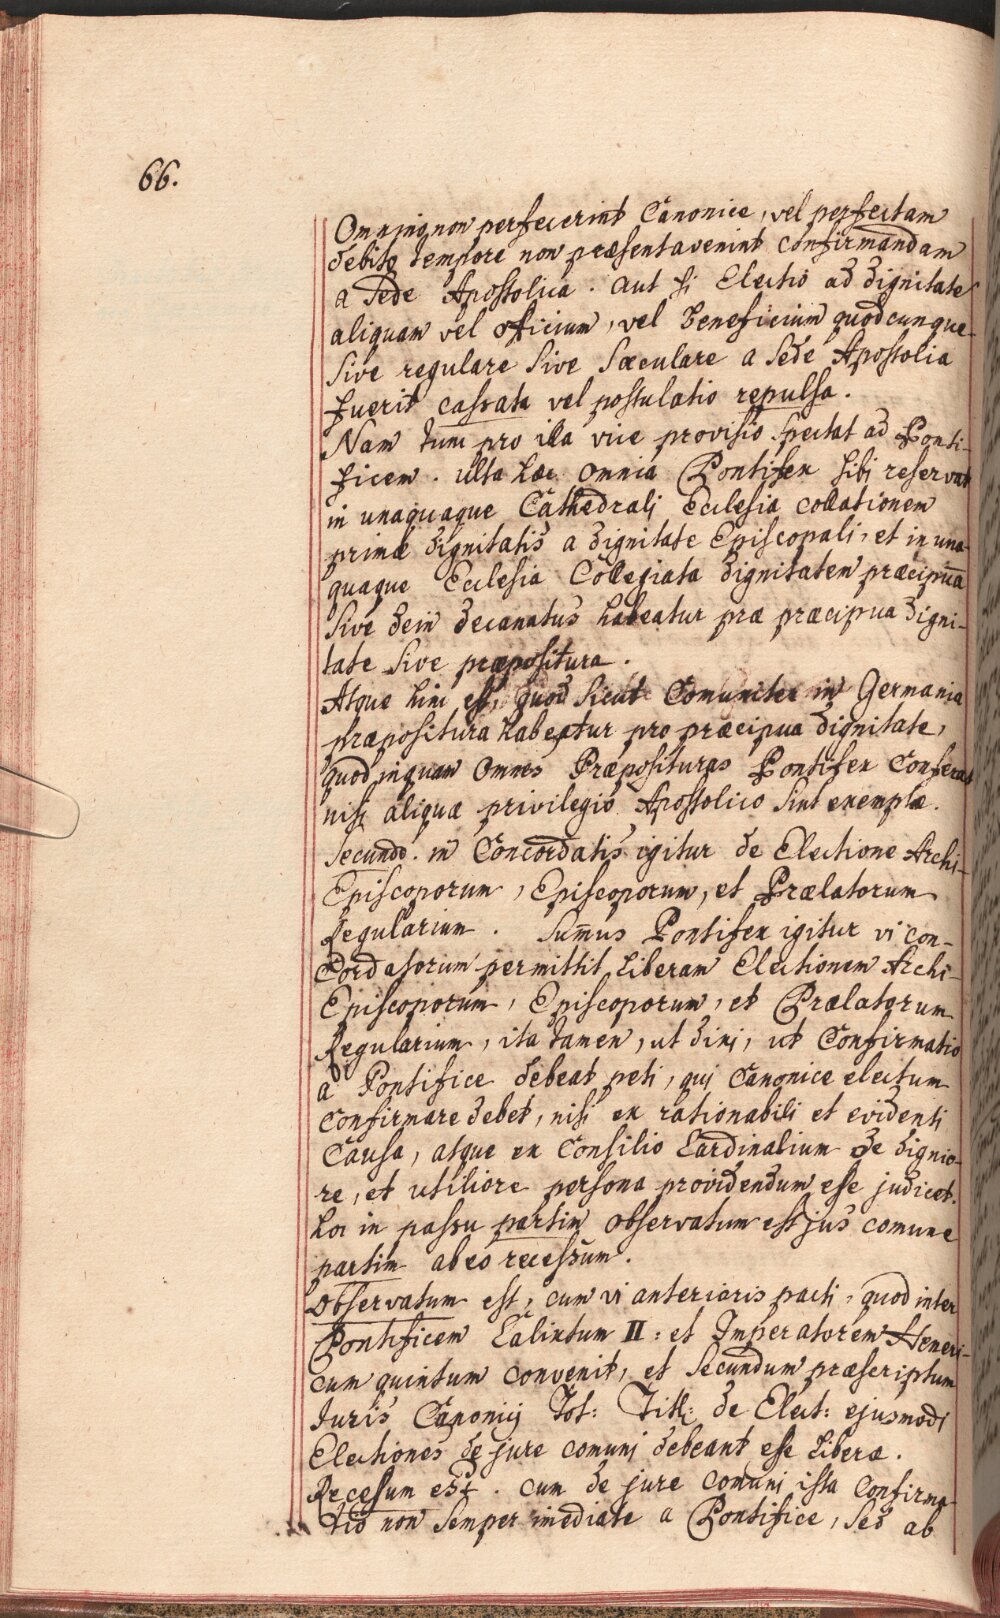 66.
Omnino non perfecerint Canonice, vel perfectam
debito tempore non præsentaverint confirmandam
a Sede Apostolica. aut si Electio ad dignitate
aliquam vel officium, vel beneficium quodcunque
Sive regulare Sive Sæculare a Sede Apostolia
fuerit cassata vel postulatio repulsa.
Nam tum pro illa vice provisio spectat ad Ponti-
ficem. ulta hæc omnia Pontifex sibi reservat
in unaquaque Cathedrali Ecclesia collationem
primæ dignitatis a dignitate Episcopali, et in una-
quaque Ecclesia Collegiata dignitatem præcipuā
Sive dein decanatus habeatur præ præcipua digni-
tate Sive præpositura.
Atque hinc est, quod sicut Comuniter in Germania
præpositura habeatur pro præcipua dignitate,
quod inquam Omnes Præposituras Pontifex Conferat
nisi aliquæ privilegio Apostolico sint exemptæ.
Secundo. in Concordatis igitur de Electione Archi-
Episcoporum, Episcoporum, et Prælatorum
Regularium. Sum̄us Pontifex igitur vi con-
Cordatorum permittit liberam Electionem Archi-
Episcoporum, Episcoporum, et Prælatorum
Regularium, ita tamen, ut dixi, ut Confirmatio
a Pontifice debeat peti, qui Canonice electum
confirmare debet, nisi ex rationabili et evidenti
Causa, atque ex Consilio Cardinalium de dignio-
re, et utiliore persona providendum esse judicet.
hoc in passu partim observatum est jus comune
partim ab eo recessum.
Observatum est, cum vi anterioris pacti, quod inter
Pontificem Calixtum II: et Imperatorem Henri-
cum quintum convenit, et Secundum præscriptum
Juris Canonici Tot: Tith: de Elect: ejusmodi
Electiones de jure comuni debeant esse liberæ.
Recessum est. cum de jure comuni ista Confirma-
tio non semper imediate a Pontifice, sed ab